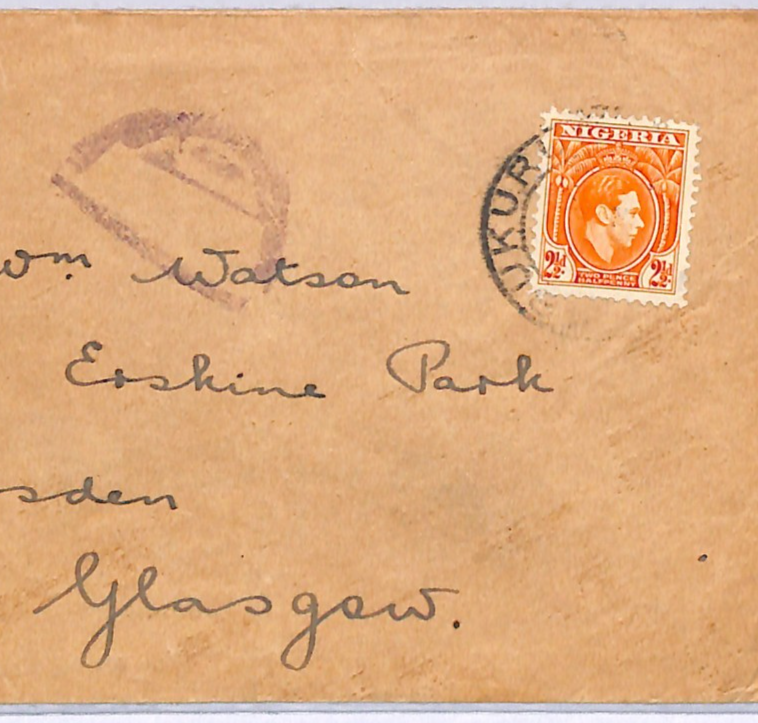 NIGERIA
2½d. TWO PENCE HALFPENNY 2½d.
BUKURU
Wm Watson
Erskine Park
sden
Glasgow.